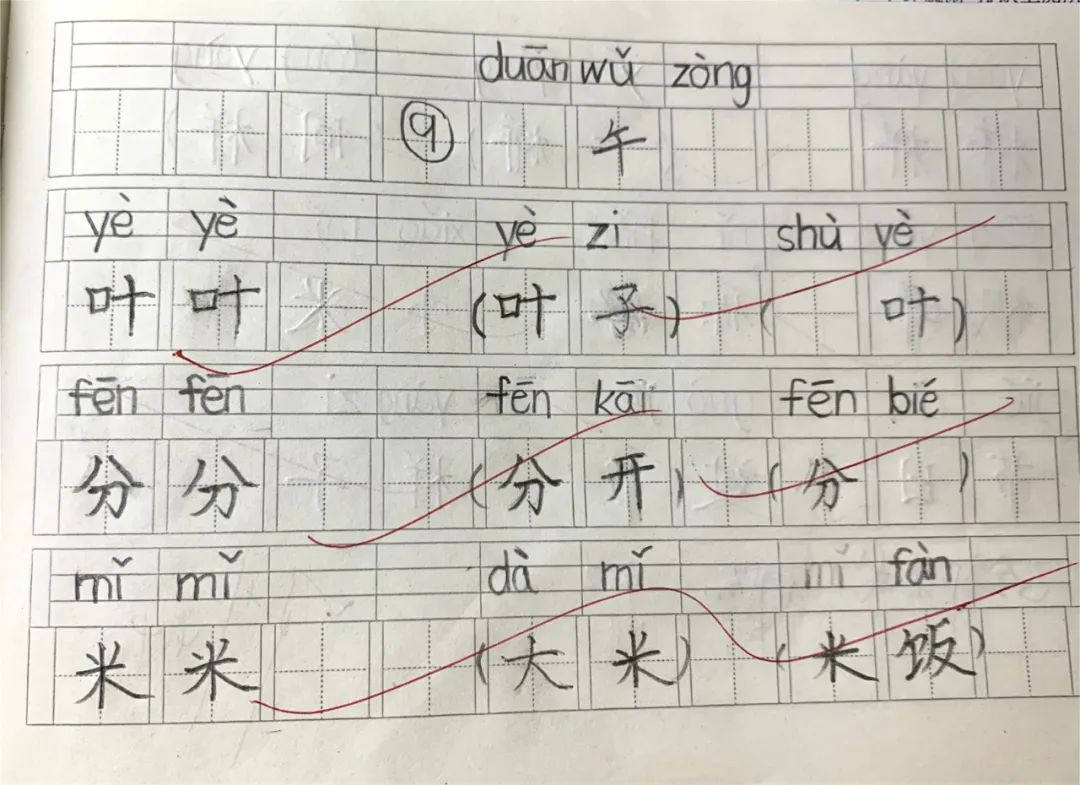 duān wǔ zòng
⑨ 午
yè yè yè zi shù yè
叶 叶 (叶 子) ( 叶)
fēn fēn fēn kāi fēn bié
分 分 (分 开) (分 )
mǐ mǐ dà mǐ mǐ fàn
米 米 (大 米) (米 饭)